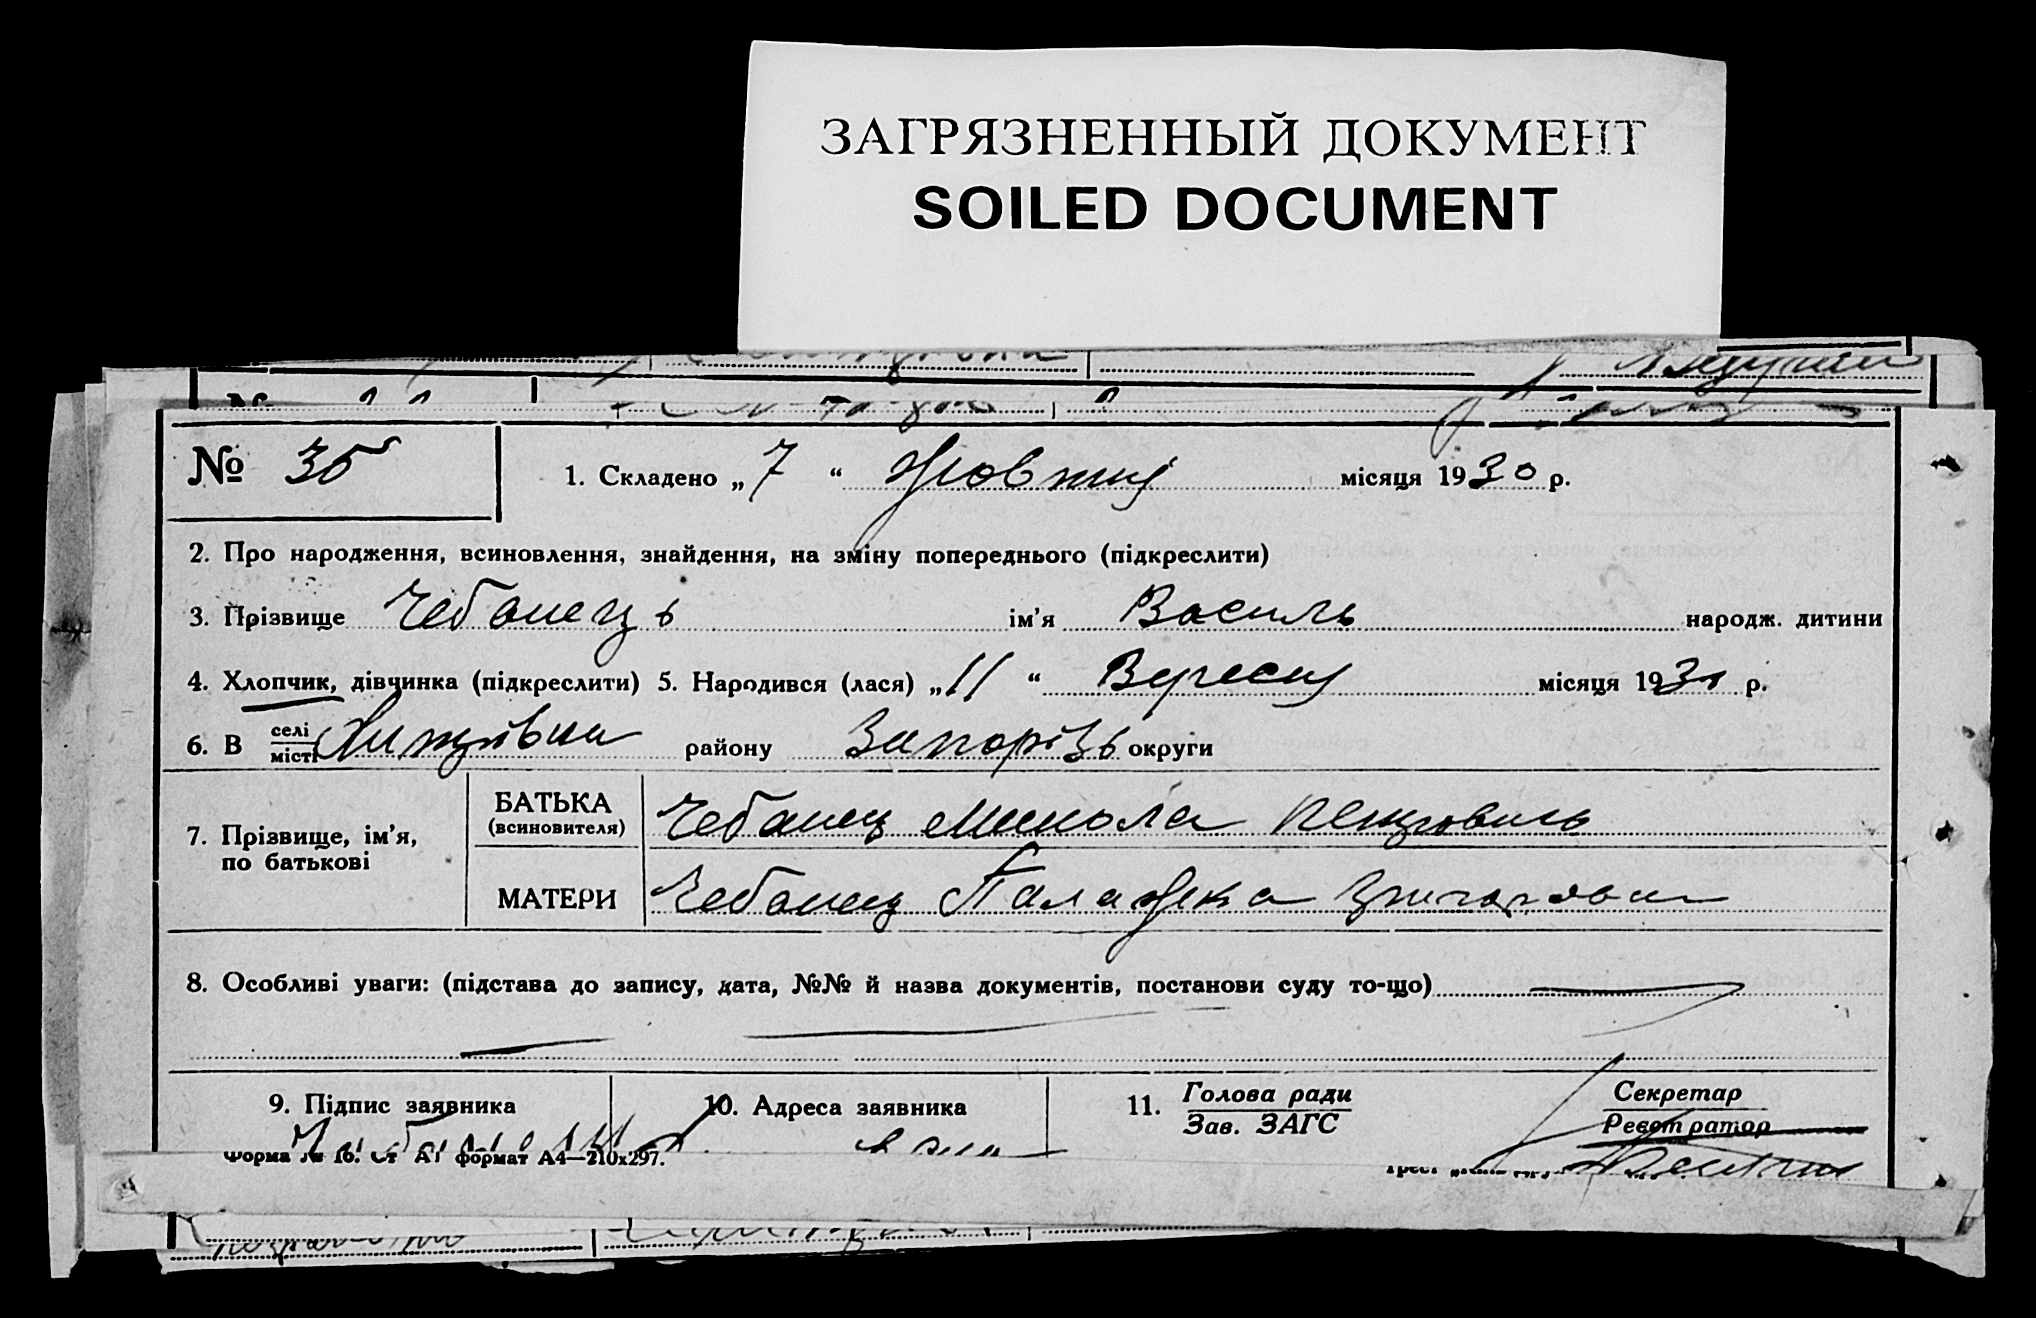 ЗАГРЯЗНЕННЫЙ ДОКУМЕНТ
SOILED DOCUMENT
№ 35
1. Складено „ 7 “ Жовтня місяця 1930 р.
2. Про народження, всиновлення, знайдення, на зміну попереднього (підкреслити)
3. Прізвище Чебанець ім’я Василь народж. дитини
4. Хлопчик, дівчинка (підкреслити) 5. Народився (лася) „ 11 “ Вересня місяця 1930 р.
6. В селі місті району Запорізь округи
7. Прізвище, ім’я, по батькові
БАТЬКА (всиновителя) Чебанец Микола
МАТЕРИ Чебанец Палажка Григоровна
8. Особливі уваги: (підстава до запису, дата, №№ й назва документів, постанови суду то-що)
9. Підпис заявника 10. Адреса заявника 11. Голова ради Зав. ЗАГС Секретар Реєстратор
Форма № 16. Ст А1 формат А4—210х297.